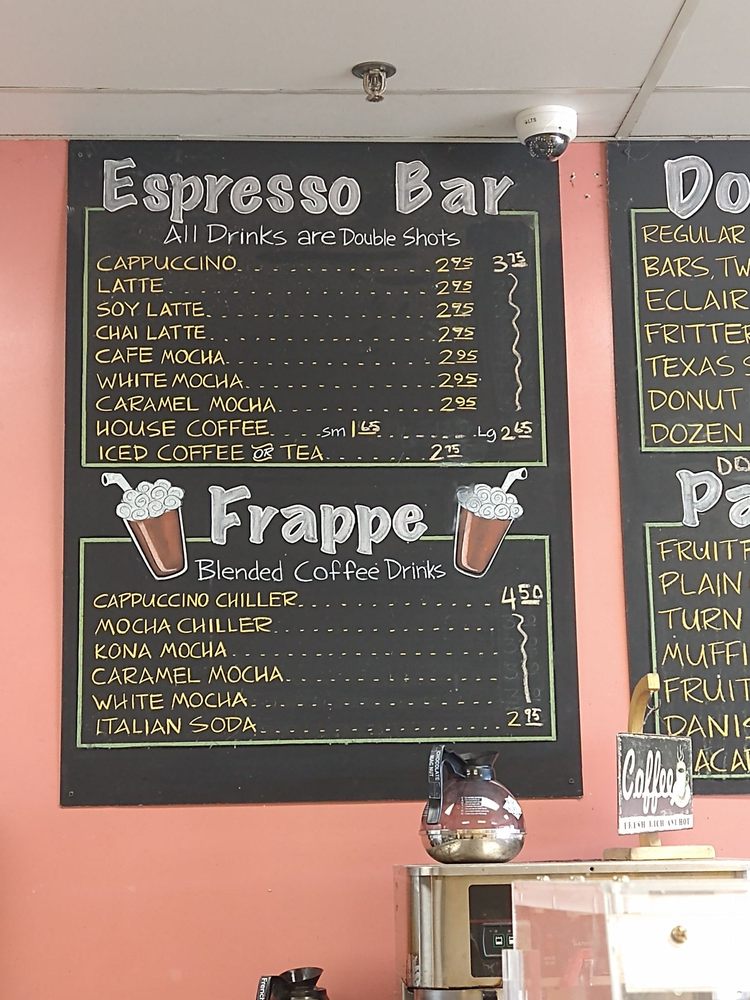 Espresso Bar
All Drinks are Double Shots
CAPPUCCINO 2.95 3.75
LATTE 2.95
SOY LATTE 2.95
CHAI LATTE 2.95
CAFE MOCHA 2.95
WHITE MOCHA 2.95
CARAMEL MOCHA 2.95
HOUSE COFFEE sm 1.65 Lg 2.65
ICED COFFEE OR TEA 2.75
Frappe
Blended Coffee Drinks
CAPPUCCINO CHILLER 4.50
MOCHA CHILLER
KONA MOCHA
CARAMEL MOCHA
WHITE MOCHA
ITALIAN SODA 2.95
Do
REGULAR
BARS, TW
ECLAIR
FRITTER
TEXAS S
DONUT
DOZEN
DO
Pa
FRUIT F
PLAIN
TURN
MUFFI
FRUIT
DANIS
ACA
Coffee
FRESH RICH AND HOT
CHOCOLATE
MAC NUT
French